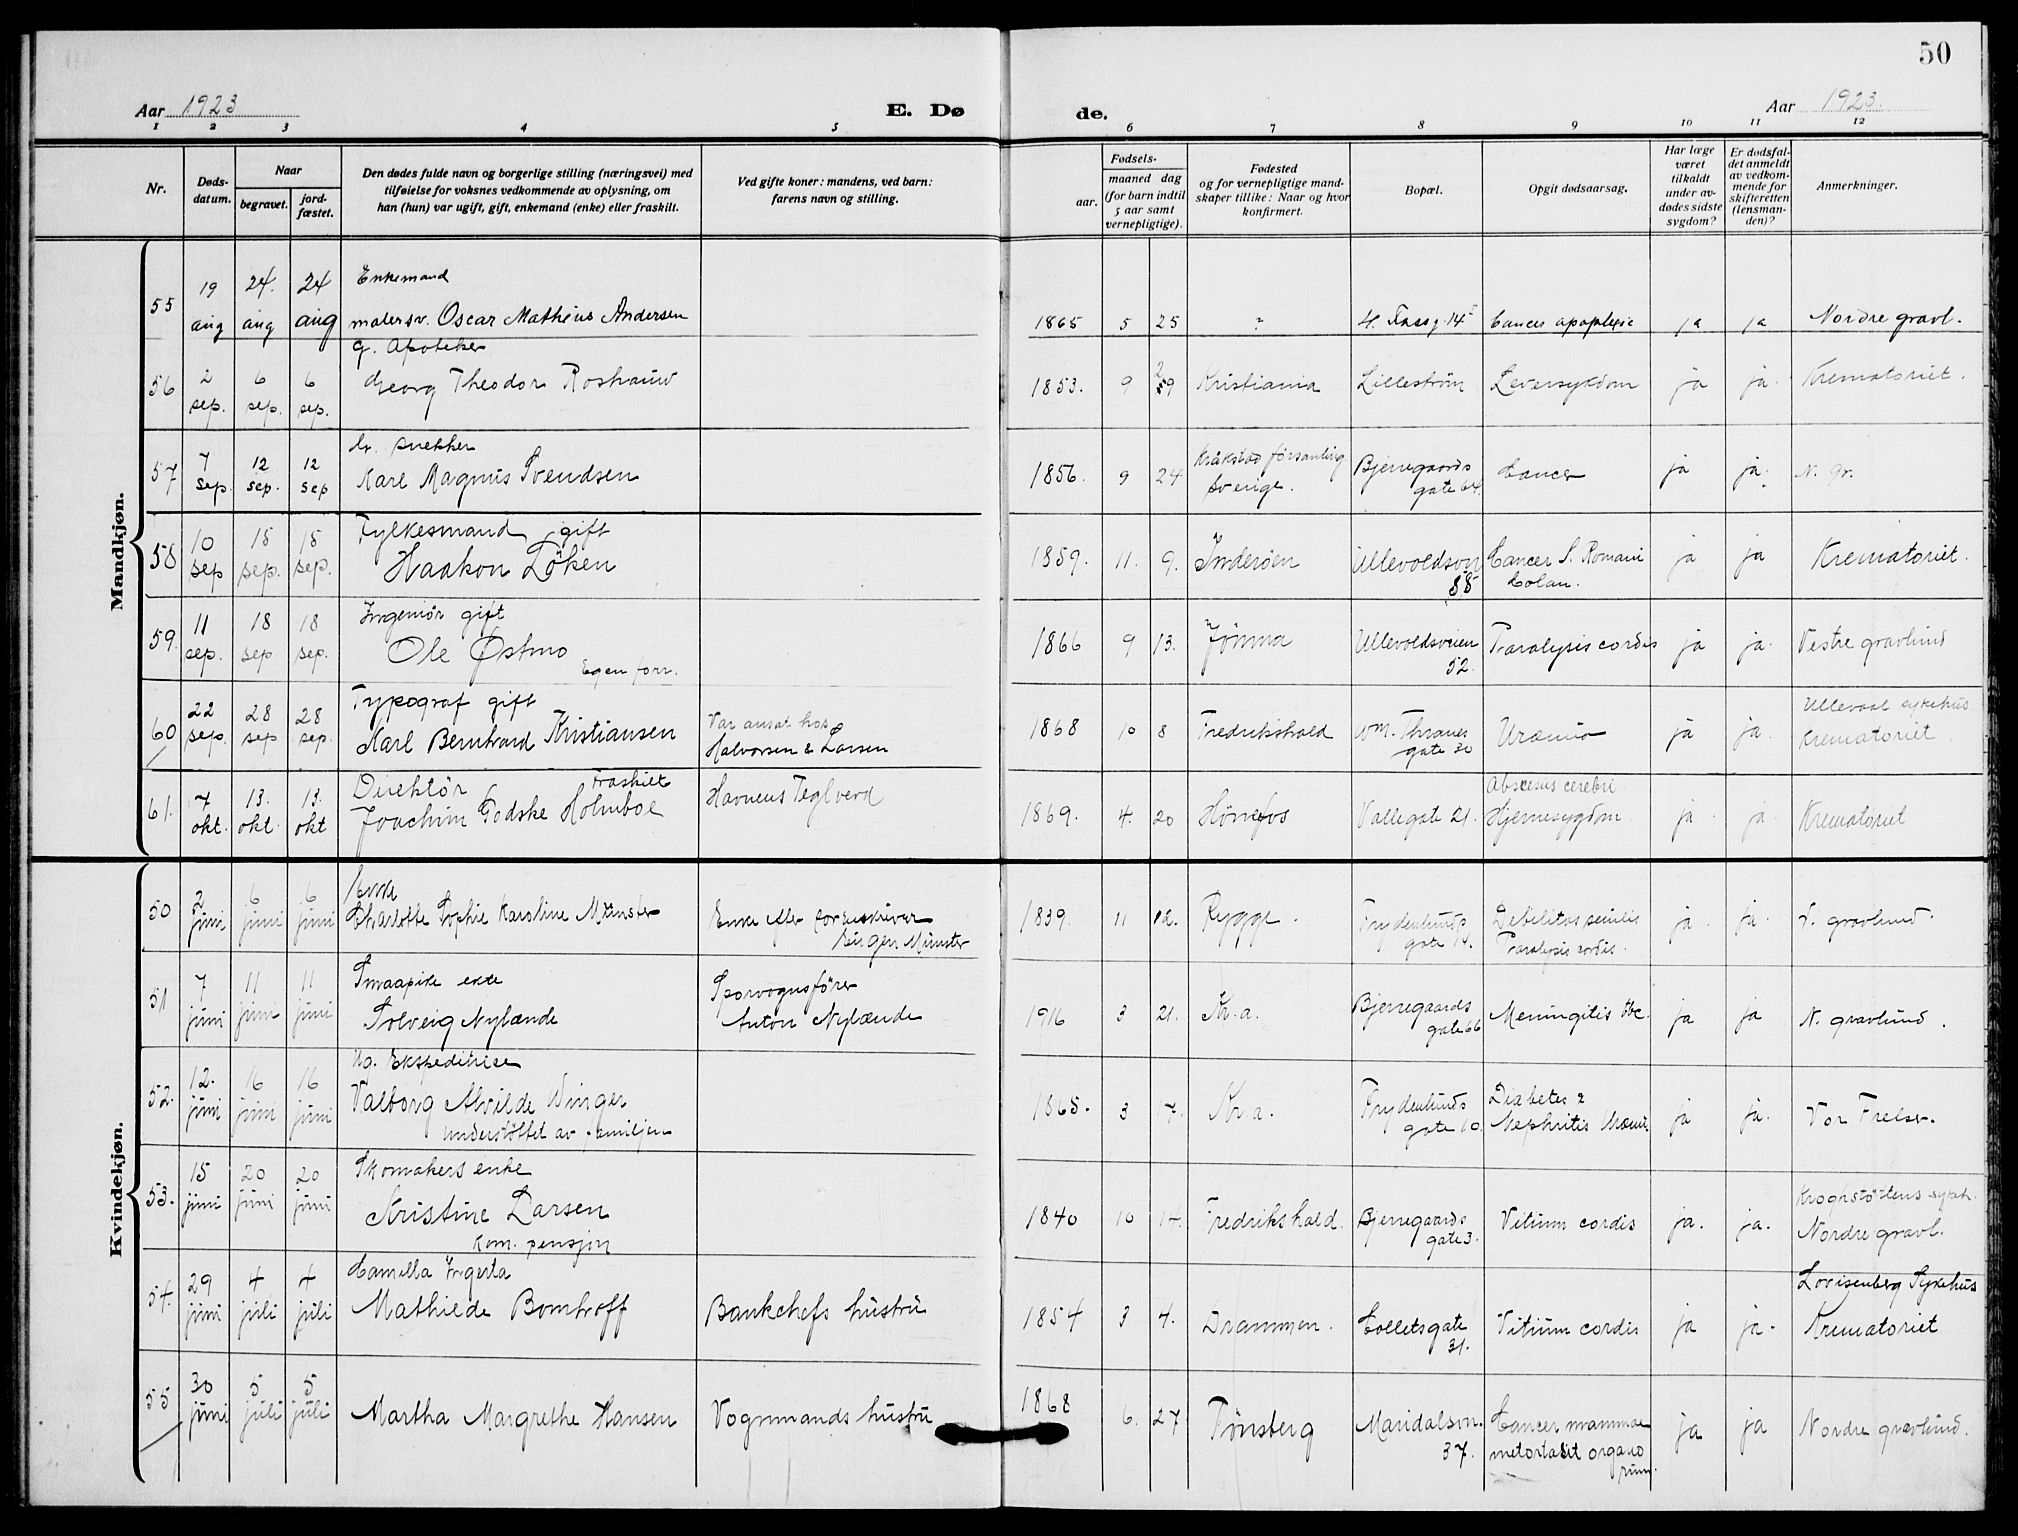 50
Aar 1923
E. Dø
de.
Aar 1923.
1 2 3 4 5 6 7 8 9 10 11 12
Nr.
Døds-
datum.
Naar
begravet.
jord-
fæstet.
Den dødes fulde navn og borgerlige stilling (næringsvei) med
tilføielse for voksnes vedkommende av oplysning, om
han (hun) var ugift, gift, enkemand (enke) eller fraskilt.
Ved gifte koner: mandens, ved barn:
farens navn og stilling.
Fødsels-
aar.
maaned dag
(for barn indtil
5 aar samt
vernepligtige).
Fødested
og for vernepligtige mand-
skaper tillike: Naar og hvor
konfirmert.
Bopæl.
Opgit dødsaarsag.
Har læge
været
tilkaldt
under av-
dødes sidste
sygdom?
Er dødsfal-
det anmeldt
av vedkom-
mende for
skifteretten
(lensman-
den)?
Anmerkninger.
Mandkjøn.
55 19 aug 24. aug 24 aug
Enkemand
malersv. Oscar Matheus Andersen
1865 5 25 ? Cancer apoplexie ja ja Nordre gravl.
56 2 sep. 6 sep. 6 sep.
g. Apoteker
Georg Theodor Roshauw
1853. 9 29 Kristiania Lillestrøm Leversykdom ja ja. Krematoriet.
57 7 sep. 12 sep. 12 sep
Gr. snekker
Karl Magnus Svendsen
1856. 9 24 Kråkstad församling
Sverige.
Bjerregaards
gate 64.
Cancer ja ja. N. gr.
58 10 sep 15 sep. 15 sep.
Fylkesmand, gift
Haakon Löken
1859. 11. 9. Inderöen Ullevoldsvn
58
Cancer S. Romani
Colan.
ja ja Krematoriet.
59. 11 sep. 18 sep. 18 sep.
Ingeniör gift
Ole Østmo
Egen forr.
1866 9 13. Jömna Ullevoldsveien
52.
Paralysis cordis ja ja. Vestre gravlund
60 22 sep. 28 sep 28 sep.
Typograf gift
Karl Bernhard Kristiansen
Var ansat hos
Halvorsen & Larsen
1868 10 8 Fredrikshald Wm. Thranes
gate 30
Uræmia ja ja. Ullevaal sykehus.
Krematoriet.
61. 7 okt. 13. okt. 13. okt
Direktör Fraskilt
Joachim Godske Holmboe
Havnens Teglverd
1869. 4. 20 Hönefos Vallegate 21. Abscesus cerebri.
Hjernesygdom.
ja. ja. Krematoriet
Kvindekjøn.
50 2 juni 6 juni 6 juni
Enke
Charlotte Sophie Karoline Münster
Enke efter sorenskriver
Jürgen Münster
1839. 11 12. Rygge. Frydenlunds
gate 14.
Debilitas senilis
Paralysis cordis.
ja. ja. V. gravlund.
51 7 juni 11 juni 11 juni
Smaapike ekte
Solveig Nylænde
Sporvognsförer
Anton Nylænde
1916 3 21. Kr.a. Bjerregaards
gate 66
Meningitis tbc. ja ja N. gravlund.
52. 12. juni 16 juni 16 juni
Ug. Ekspeditrice
Valborg Alvilde Winger
understöttet av familjen
1865. 3 7. Kr.a. Frydenlunds
gate 10.
Diabetes &
Nephritis Uræmi.
ja ja. Vor Frelser.
53. 15 juni 20 juni 20 juni
Skomakers enke
Kristine Larsen
kom. pensjon
1840 10 14. Fredrikshald. Bjerregaards
gate 3.
Vitium cordis ja. ja. Kroghstöttens sykeh.
Nordre gravl.
54. 29 juni 4 juli 4 juli
Camilla Ingerta
Mathilde Bomhoff
Bankchefs hustru
1854 3 4. Drammen. Colletsgate
31.
Vitium cordis ja ja. Lovisenberg Sykehus
Krematoriet
55 30 juni 5 juli 5 juli
Martha Margrethe Hansen
Vognmands hustru
1868 6. 27 Tönsberg Maridalsvn.
37.
Cancer mammae
metortaset organo
rum.
ja ja Nordre gravlund.